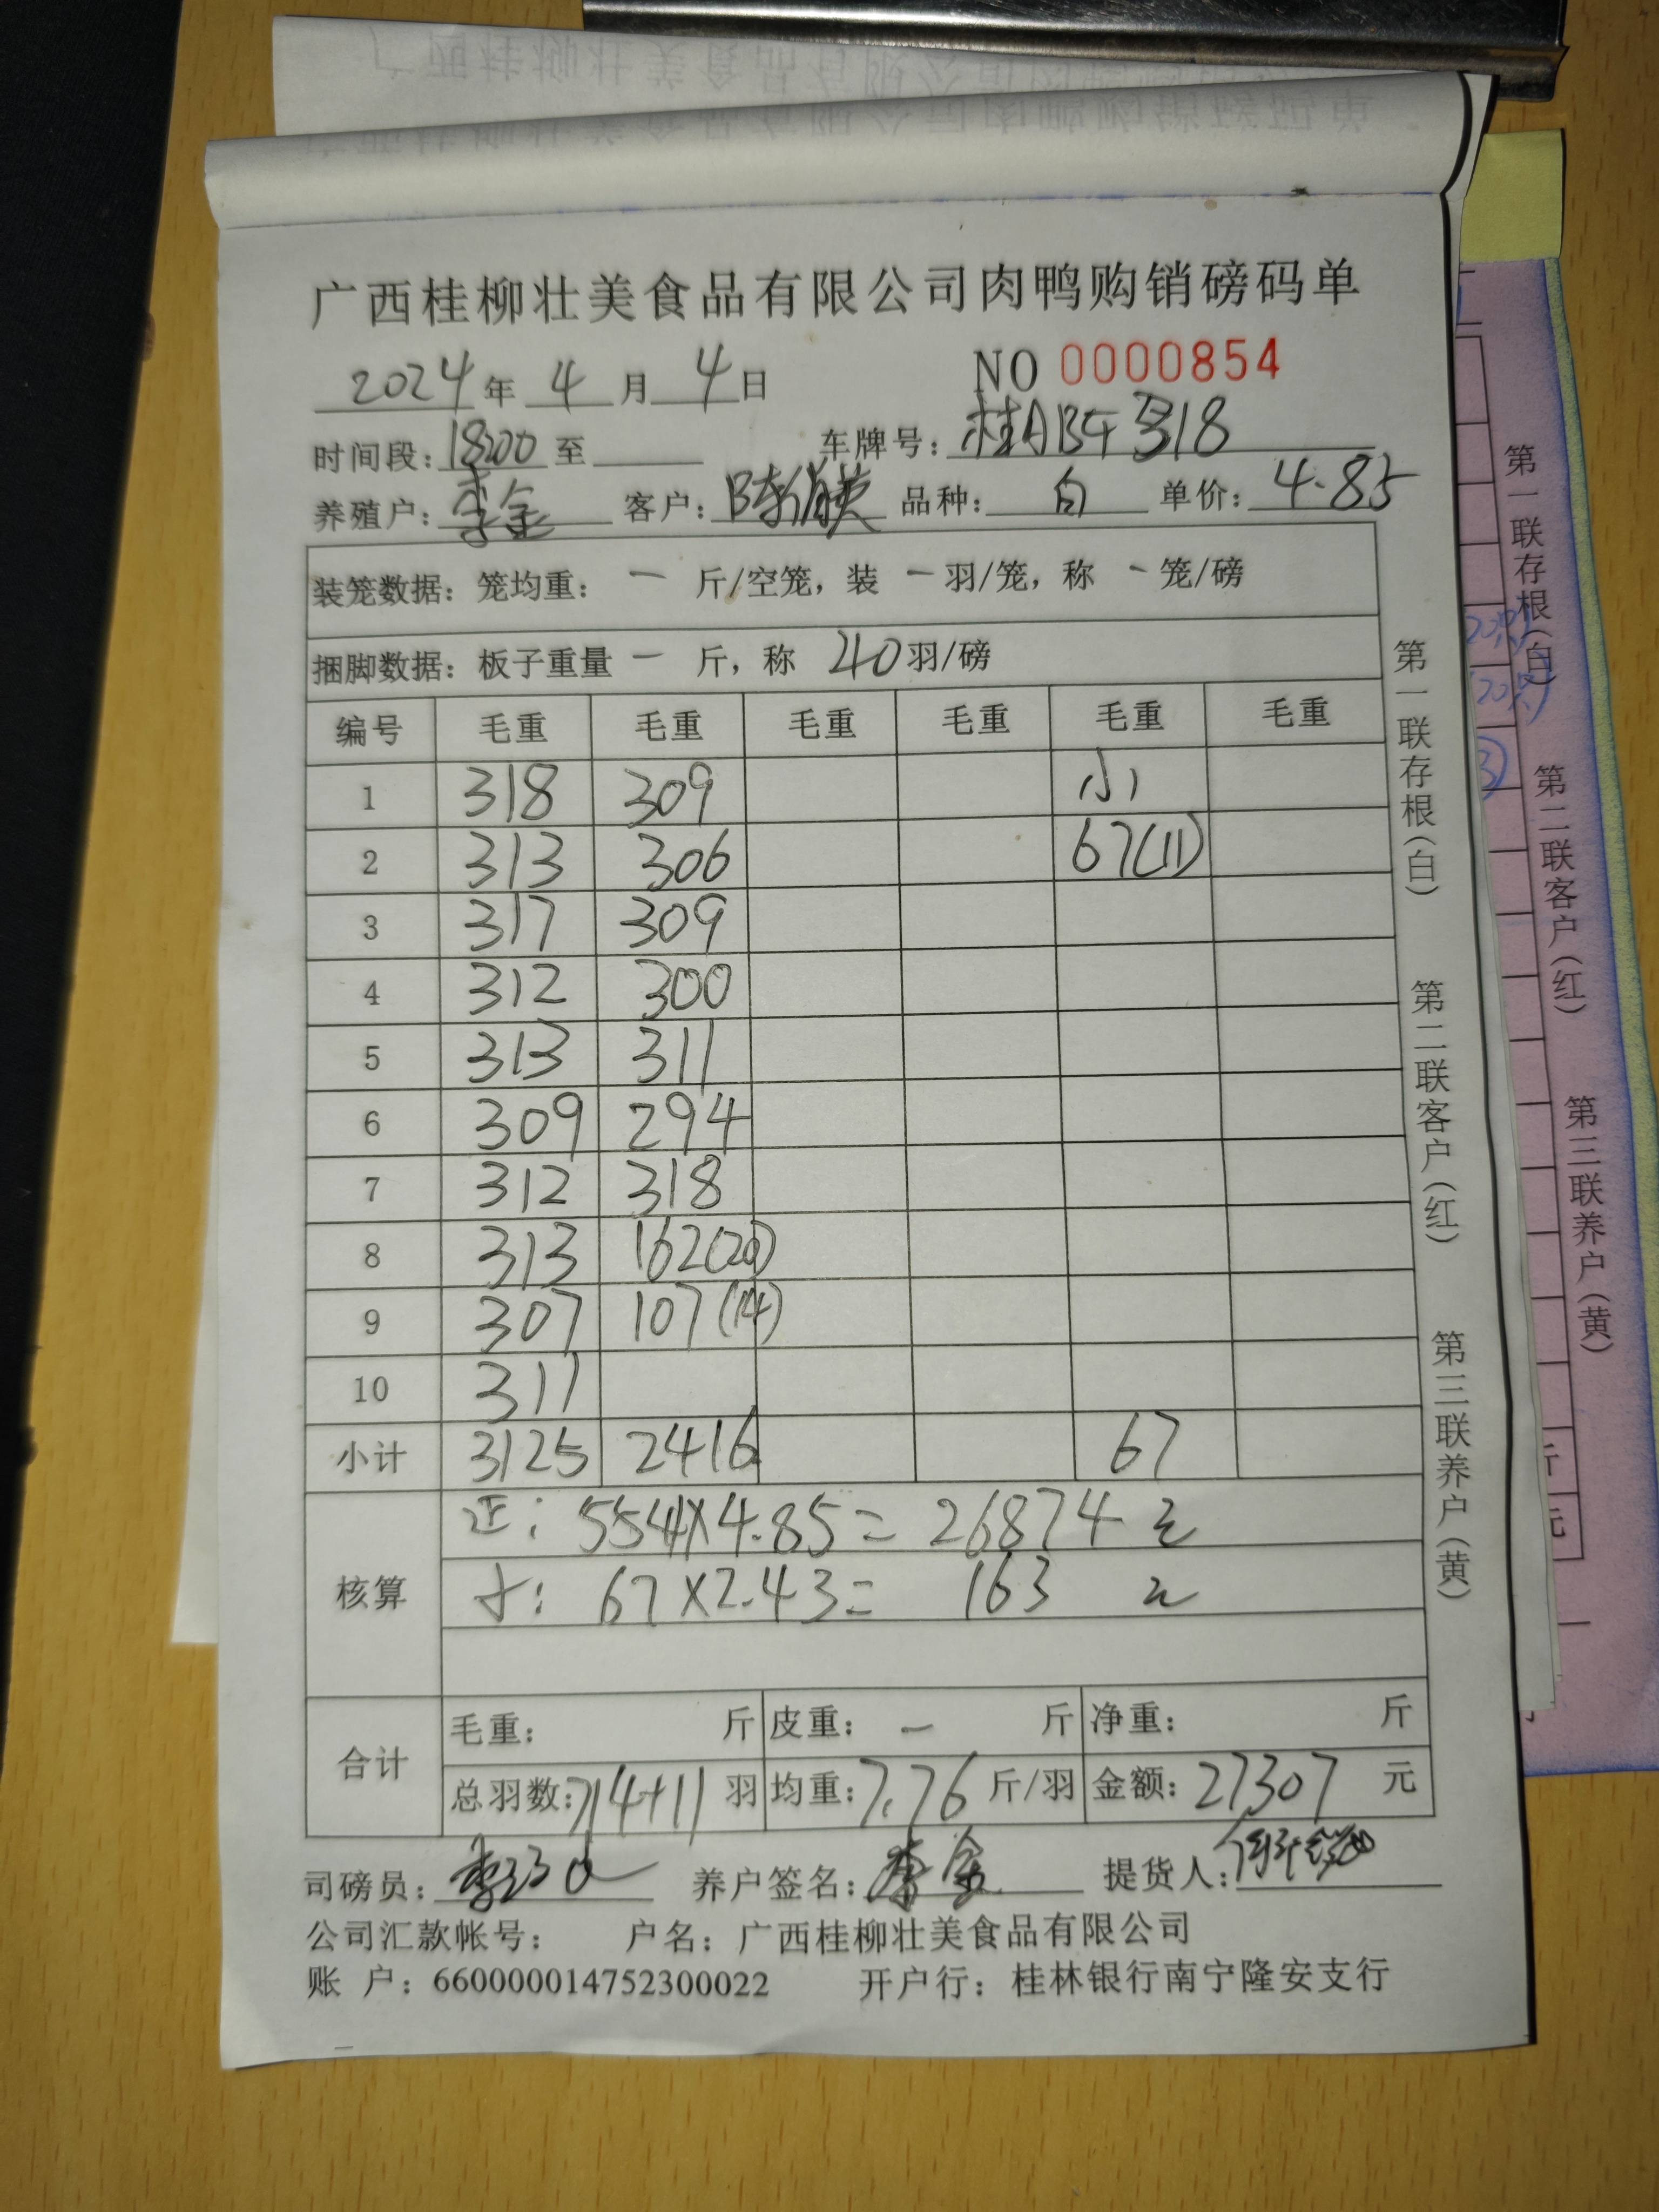 广西桂柳壮美食品有限公司肉鸭购销磅码单
2024年 4月 4日 NO 0000854
时间段: 18:00 至 车牌号: 桂AB 318
养殖户: 李金 客户: 陈 品种: 白 单价: 4.85
装笼数据: 笼均重: 一 斤/空笼, 装 一 羽/笼, 称 - 笼/磅
捆脚数据: 板子重量 一 斤, 称 40 羽/磅
编号 毛重 毛重 毛重 毛重 毛重 毛重
1 318 309 小
2 313 306 67(11)
3 317 309
4 312 300
5 313 311
6 309 294
7 312 318
8 313 162(20)
9 307 107(14)
10 311
小计 3125 2416 67
核算
正: 5541×4.85= 26874 元
小: 67×2.43= 163 元
合计
毛重: 斤 皮重: 一 斤 净重: 斤
总羽数: 714+11 羽 均重: 7.76 斤/羽 金额: 27307 元
司磅员: 养户签名: 李金 提货人:
公司汇款帐号: 户名: 广西桂柳壮美食品有限公司
账 户: 660000014752300022 开户行: 桂林银行南宁隆安支行
第一联存根(白)
第二联客户(红)
第三联养户(黄)
第一联存根(白)
第二联客户(红)
第三联养户(黄)